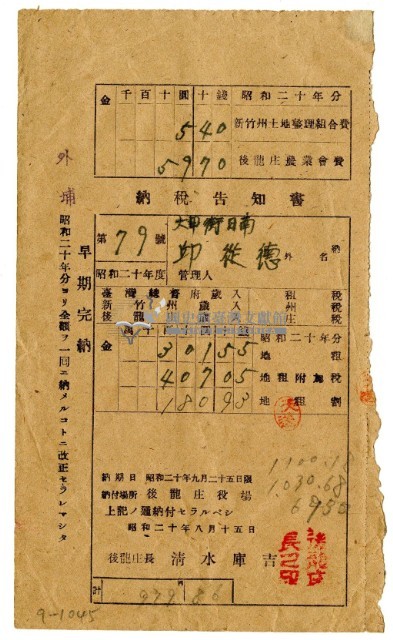 金 千百十圓十錢 昭和二十年分
540 新竹州土地整理組合費
5970 後龍庄農業會費
納稅告知書
外埔
早期完納
昭和二十年分ヨリ全額ヲ一回ニ納メルコトニ改正セラレマシタ
第79號
大甲街日南
邱從德
外 名
納
昭和二十年度 管理人
臺灣總督府歲入 租稅
新竹州歲入 州稅
後龍庄歲入 庄稅
金 萬千百十圓十錢 昭和二十年分
30155 地租
40705 地租附加稅
18093 地租割
納期日 昭和二十年九月二十五日限
納付場所 後龍庄役場
上記ノ通納付セラルベシ
昭和二十年八月十五日
後龍庄長 清水庫吉
後龍庄長之印
1100.18
1030.68
6950
計 97986
9-1045